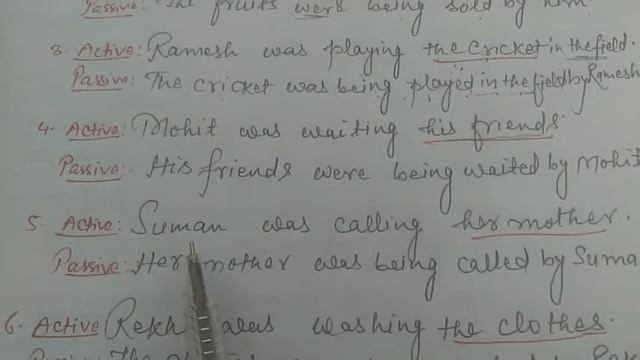 Passive: The fruits were being sold by him
3. Active: Ramesh was playing the cricket in the field.
Passive: The cricket was being played in the field by Ramesh
4. Active: Mohit was waiting his friends.
Passive:- His friends were being waited by Mohit
5. Active: Suman was calling her mother.
Passive: Her mother was being called by Suma
6. Active Rekh was washing the clothes.